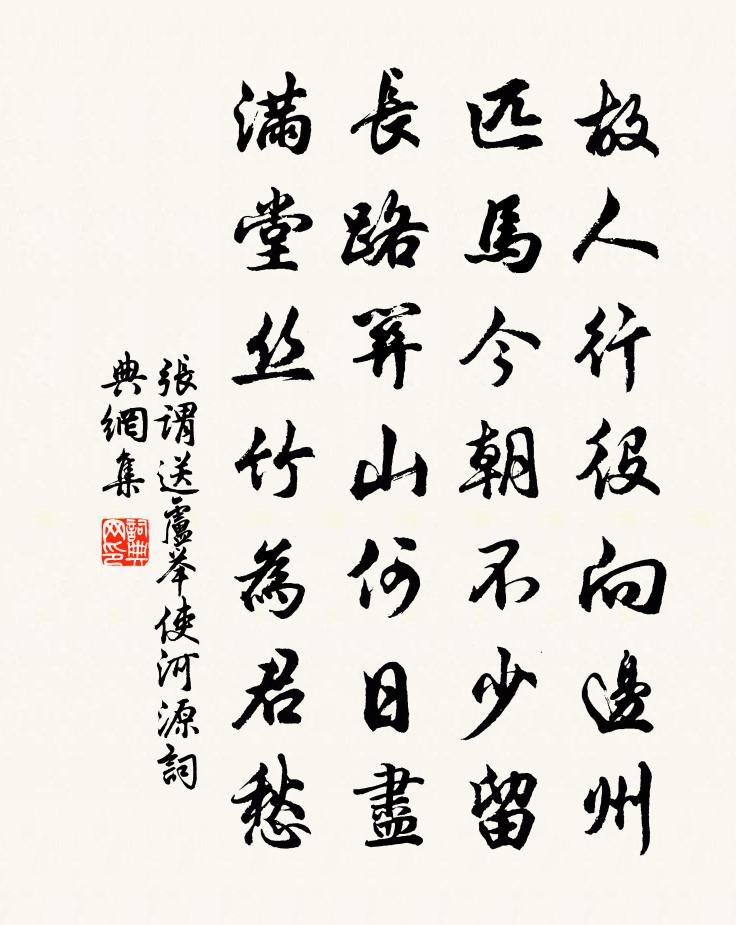 故人行役向邊州
匹馬今朝不少留
長路關山何日盡
滿堂絲竹為君愁
張謂送盧舉使河源詞
典網集
詞典網印